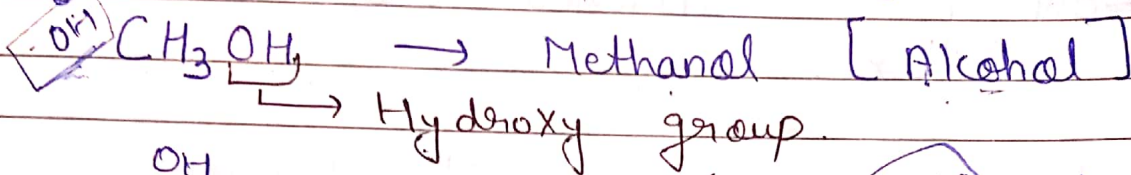 OH CH3OH, → Methanol [Alcohol]
→ Hydroxy group.
OH